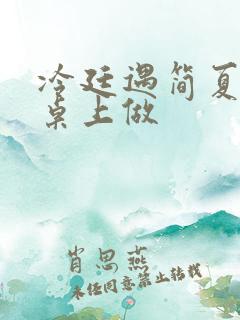 冷廷遇简夏
桌上做
肖思燕
未经同意禁止转载